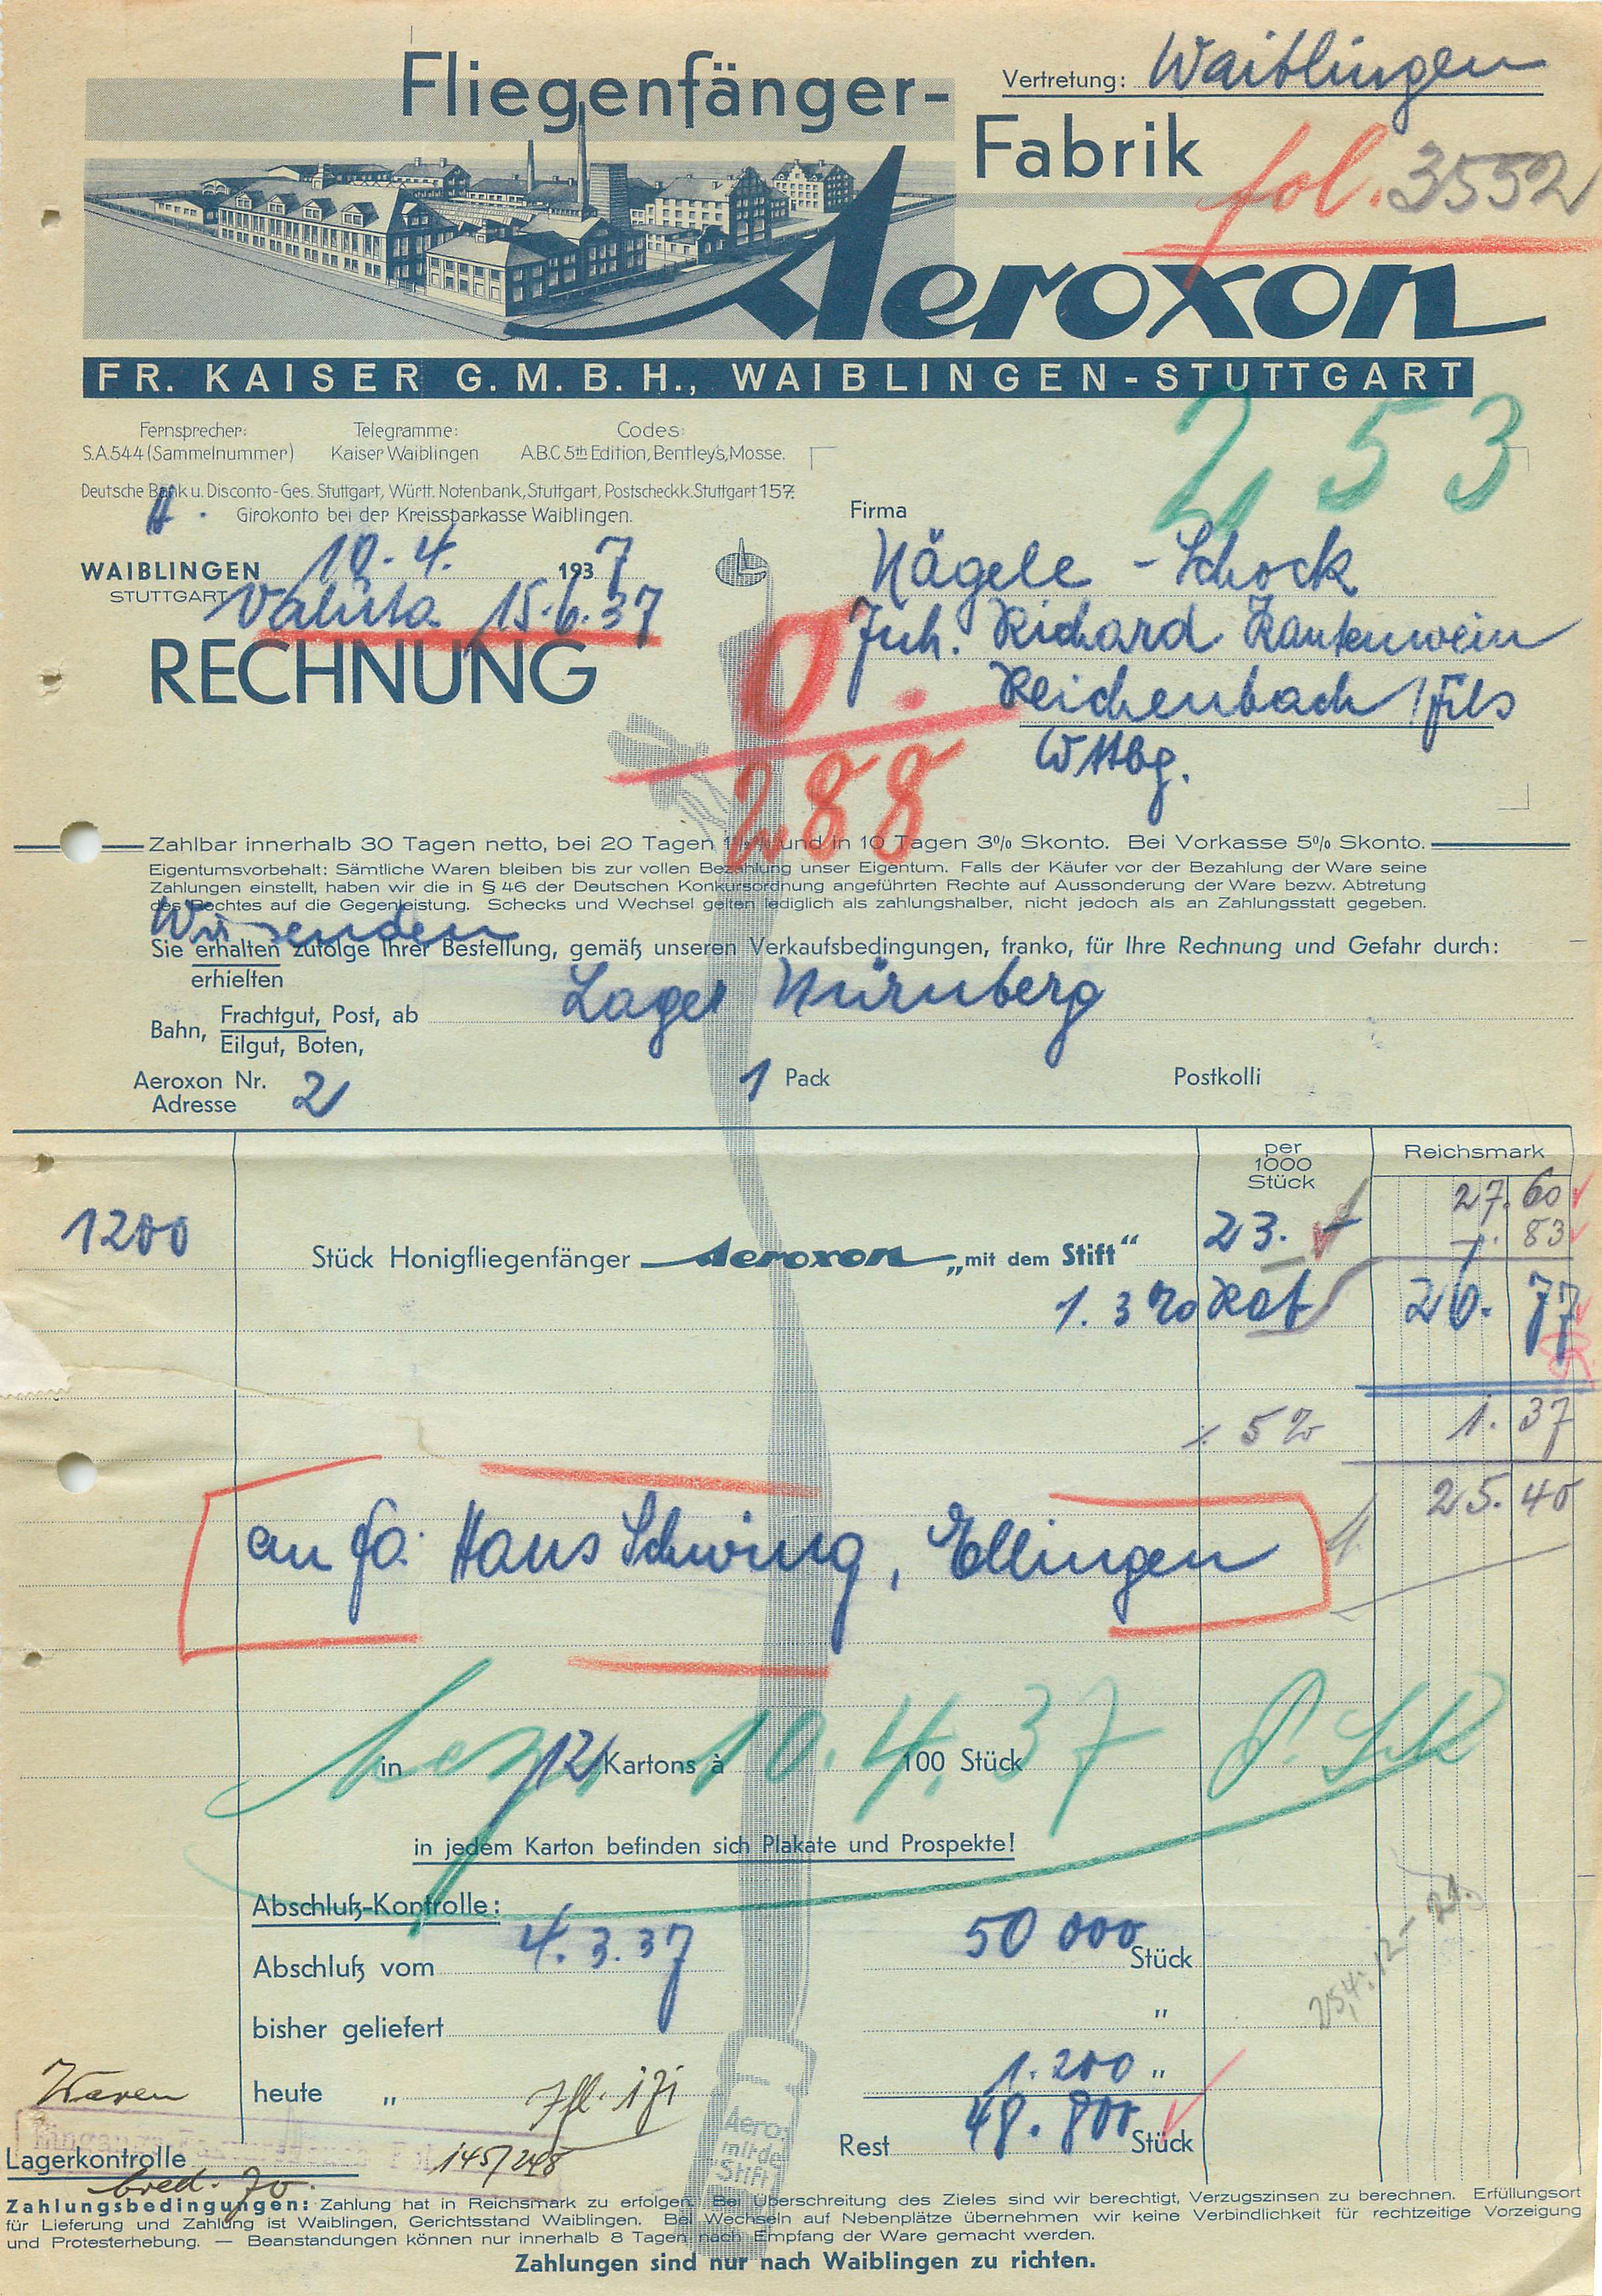 Fliegenfänger-
Vertretung: Waiblingen
Fabrik
fol. 3552
Aeroxon
FR. KAISER G.M.B.H., WAIBLINGEN-STUTTGART
253
Fernsprecher: Telegramme: Codes:
S.A.544 (Sammelnummer) Kaiser Waiblingen A.B.C. 5th Edition, Bentley's, Mosse.
Deutsche Bank u. Disconto-Ges. Stuttgart, Württ. Notenbank, Stuttgart, Postscheckk. Stuttgart 157.
Girokonto bei der Kreissparkasse Waiblingen.
Firma
WAIBLINGEN 10.4. 1937
STUTTGART
Valuta 15.6.37
RECHNUNG
Nägele - Schock
Inh. Richard Rautenwein
Reichenbach / Fils
Wttbg.
0.
288
Zahlbar innerhalb 30 Tagen netto, bei 20 Tagen 1% und in 10 Tagen 3% Skonto. Bei Vorkasse 5% Skonto.
Eigentumsvorbehalt: Sämtliche Waren bleiben bis zur vollen Bezahlung unser Eigentum. Falls der Käufer vor der Bezahlung der Ware seine
Zahlungen einstellt, haben wir die in § 46 der Deutschen Konkursordnung angeführten Rechte auf Aussonderung der Ware bezw. Abtretung
des Rechtes auf die Gegenleistung. Schecks und Wechsel gelten lediglich als zahlungshalber, nicht jedoch als an Zahlungsstatt gegeben.
Wir senden
Sie erhalten zufolge Ihrer Bestellung, gemäß unseren Verkaufsbedingungen, franko, für Ihre Rechnung und Gefahr durch:
erhielten
Lager Nürnberg
Bahn, Frachtgut, Post, ab
Eilgut, Boten,
Aeroxon Nr. 2 1 Pack Postkolli
Adresse
per
1000
Stück
Reichsmark
27.60
1200 Stück Honigfliegenfänger Aeroxon „mit dem Stift“ 23.-
-.83
1. 3 % Rab 26.77
÷ 5% 1.37
25.40
an Fa. Hans Schwing, Ellingen
in 12 Kartons à 100 Stück
10.4.37
in jedem Karton befinden sich Plakate und Prospekte!
Abschluß-Kontrolle:
Abschluß vom 4.3.37 50 000 Stück
bisher geliefert "
heute " 1.200 "
Waren
Rest 48.800 Stück
Lagerkontrolle
145/248
Zahlungsbedingungen: Zahlung hat in Reichsmark zu erfolgen. Bei Überschreitung des Zieles sind wir berechtigt, Verzugszinsen zu berechnen. Erfüllungsort
für Lieferung und Zahlung ist Waiblingen, Gerichtsstand Waiblingen. Bei Wechseln auf Nebenplätze übernehmen wir keine Verbindlichkeit für rechtzeitige Vorzeigung
und Protesterhebung. — Beanstandungen können nur innerhalb 8 Tagen nach Empfang der Ware gemacht werden.
Zahlungen sind nur nach Waiblingen zu richten.